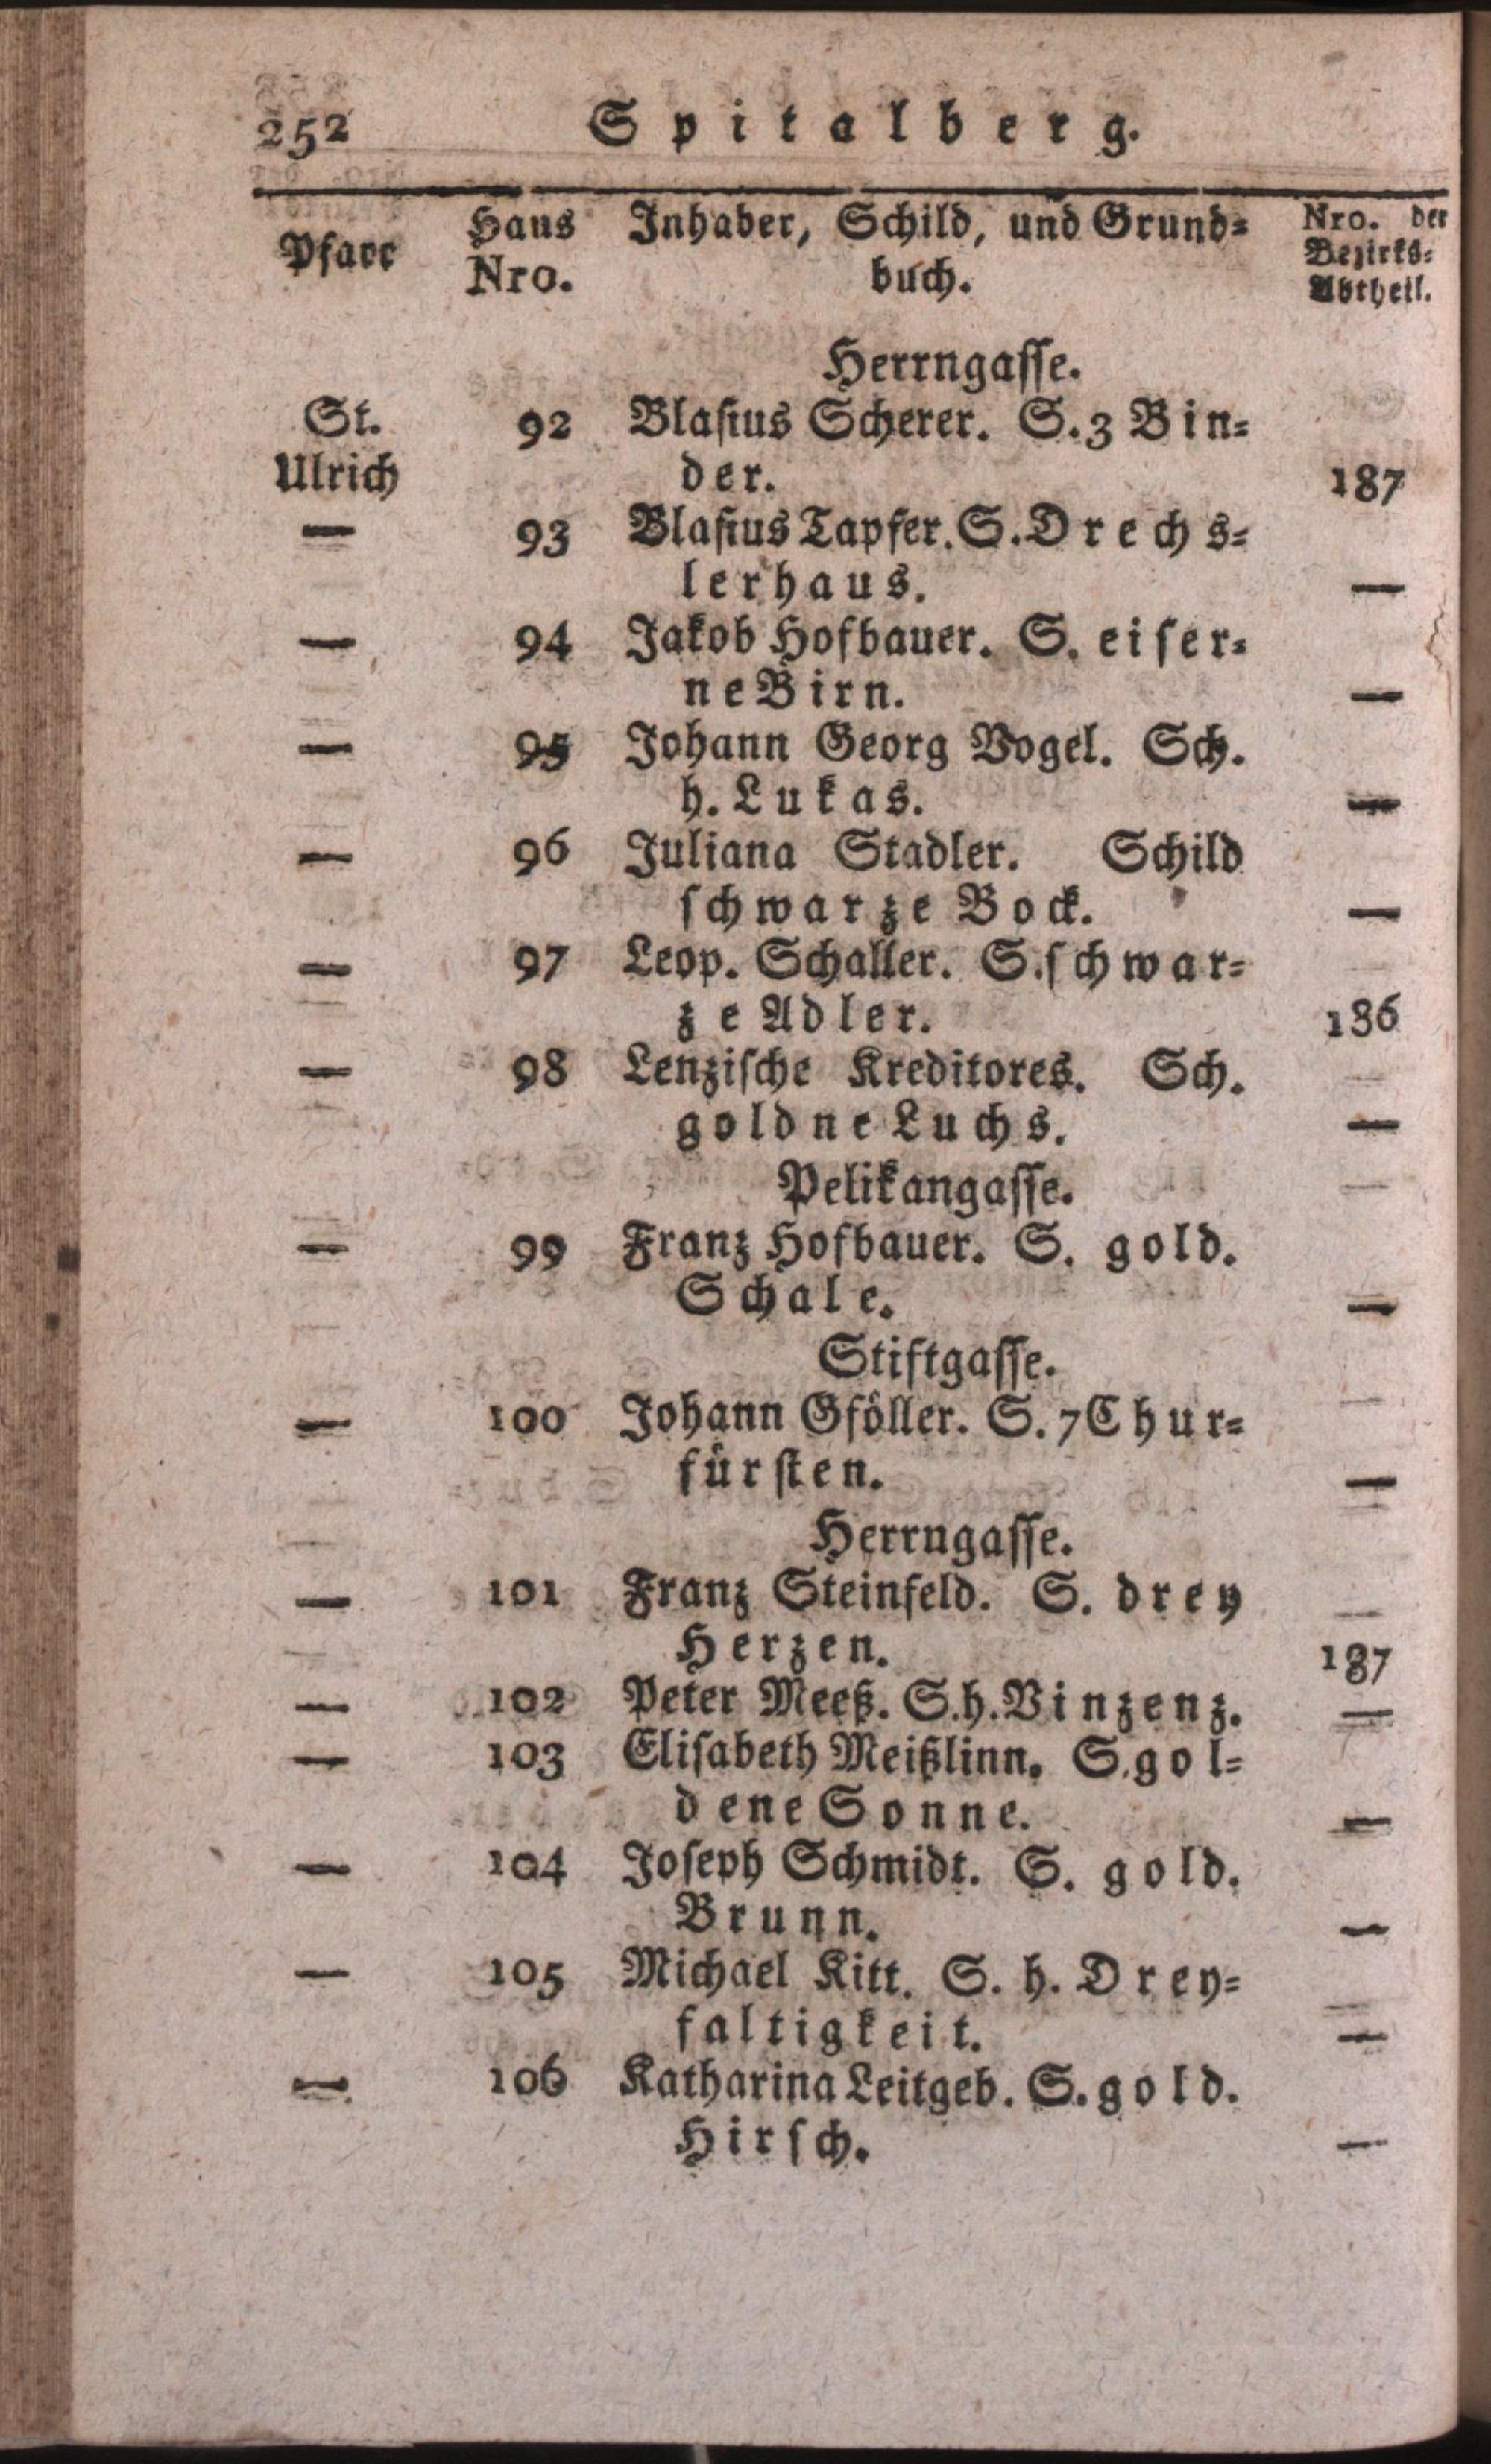 252 Spitalberg.
Pfarr Haus Nro. Inhaber, Schild, und Grund=
buch. Nro. der Bezirks= Abtheil.
Herrngaſſe.
St. 92 Blaſius Scherer. S. 3 Bin=
Ulrich der. 187
— 93 Blaſius Tapfer. S. Drechs=
lerhaus. —
— 94 Jakob Hofbauer. S. eiſer=
ne Birn. —
— 95 Johann Georg Vogel. Sch.
h. Lukas. —
— 96 Juliana Stadler. Schild
ſchwarze Bock. —
— 97 Leop. Schaller. S. ſchwar=
ze Adler. 186
— 98 Lenziſche Kreditores. Sch.
goldne Luchs. —
Pelikangaſſe.
— 99 Franz Hofbauer. S. gold.
Schale. —
Stiftgaſſe.
— 100 Johann Gföller. S. 7 Chur=
fürſten. —
Herrngaſſe.
— 101 Franz Steinfeld. S. drey
Herzen. 187
— 102 Peter Meeß. S. h. Vinzenz. —
— 103 Eliſabeth Meißlinn. S. gol=
dene Sonne. —
— 104 Joſeph Schmidt. S. gold.
Brunn. —
— 105 Michael Kitt. S. h. Drey=
faltigkeit. —
— 106 Katharina Leitgeb. S. gold.
Hirſch. —